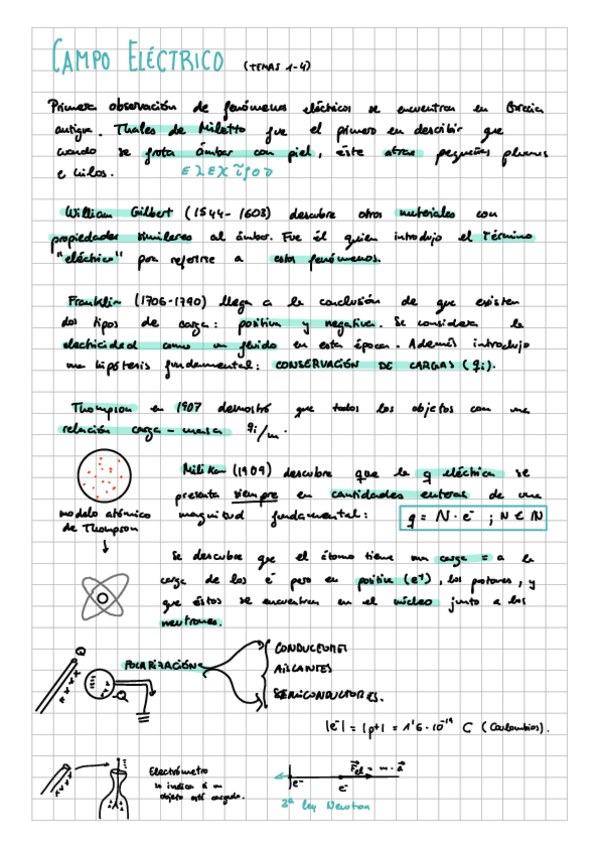 CAMPO ELÉCTRICO (TEMAS 1-4)
Primera observación de fenómenos eléctricos se encuentran en Grecia
antigua. Thales de Miletto fue el primero en describir que
cuando se frota ámbar con piel, éste atrae pequeñas plumas
e hilos.
William Gilbert (1544-1603) descubre otros materiales con
propiedades similares al ámbar. Fue él quien introdujo el término
"eléctrico" para referirse a estos fenómenos.
Franklin (1706-1790) llega a la conclusión de que existen
dos tipos de carga: positiva y negativa. Se considera la
electricidad como un fluido en esta época. Además introdujo
una hipótesis fundamental: CONSERVACIÓN DE CARGAS (qi).
Thompson en 1907 demostró que todos los objetos con una
relación carga-masa qi/m.
Milikan (1909) descubre que la q eléctrica se
presenta siempre en cantidades enteras de una
magnitud fundamental: q = N · e⁻ ; N ∈ ℕ
modelo atómico
de Thompson
Se descubre que el átomo tiene una carga = a la
carga de los e⁻ pero en positiva (e⁺), los protones, y
que éstos se encuentran en el núcleo junto a los
neutrones.
Q
-Q
POLARIZACIÓN
CONDUCTORES
AISLANTES
SEMICONDUCTORES.
|e⁻| = |p+| = 1'6 · 10⁻¹⁹ C (Coulombios).
Electrómetro
objeto está cargado.
F⃗el = m · a⃗
e⁻
e⁻
2ª ley Newton